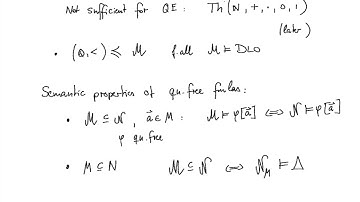 Not sufficient for QE : Th(ℕ, +, ·, 0, 1)
(later)
• (ℚ, <) ≼ 𝓜 f.all 𝓜 ⊨ DLO
Semantic properties of qu.free fmlas :
• 𝓜 ⊆ 𝓝 , a⃗ ∈ M : 𝓜 ⊨ φ[a⃗] ⟺ 𝓝 ⊨ φ[a⃗]
φ qu.free
• M ⊆ N 𝓜 ⊆ 𝓝 ⟺ 𝓝_M ⊨ Δ